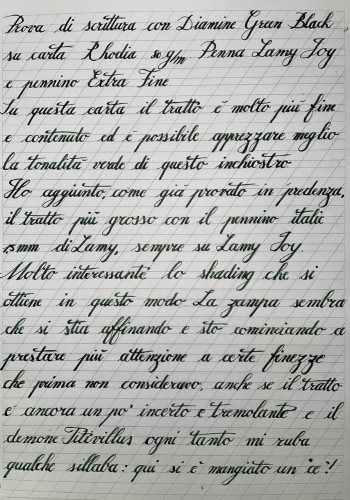 Prova di scrittura con Diamine Green Black
su carta Rhodia 80 g/m Penna Lamy Joy
e pennino Extra Fine
Su questa carta il tratto è molto più fine
e contenuto ed è possibile apprezzare meglio
la tonalità verde di questo inchiostro
Ho aggiunto, come già provato in predenza,
il tratto più grosso con il pennino italic
1,5 mm di Lamy, sempre su Lamy Joy.
Molto interessante lo shading che si
ottiene in questo modo. La zampa sembra
che si stia affinando e sto cominciando a
prestare più attenzione a certe finezze
che prima non consideravo, anche se il tratto
e' ancora un po' incerto e tremolante e il
demone Titivillus ogni tanto mi ruba
qualche sillaba: qui si è mangiato un "ce"!